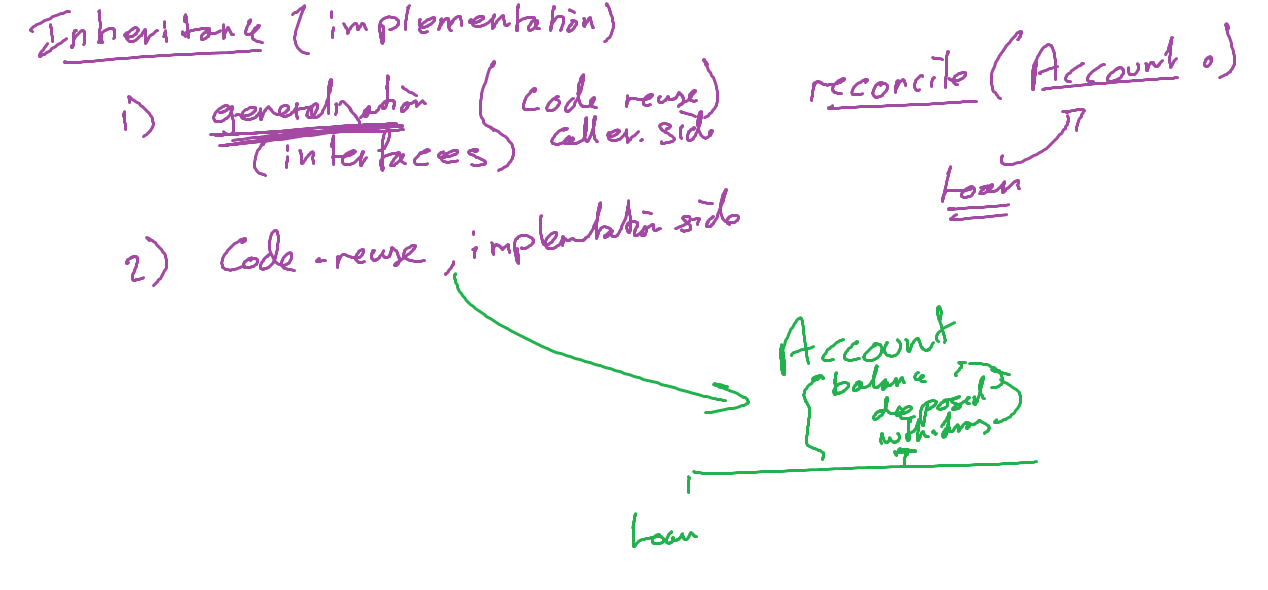 Inheritance (implementation)
1) generalization (code reuse)
(interfaces) caller.side
reconcile (Account o)
Loan
2) Code-reuse, implemtation side
Account
balance
deposit
withdraw
Loan